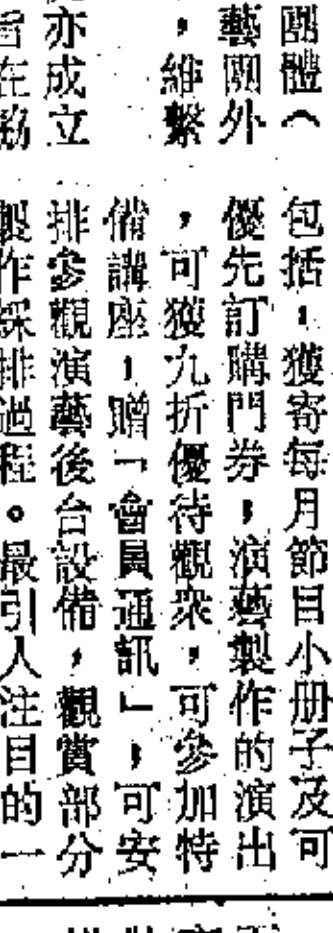 團體（
藝團外
，維繫
亦成立
旨在協
包括：獲寄每月節目小册子及可
優先訂購門券，演藝製作的演出
，可獲九折優待觀衆，可參加特
備講座，贈「會員通訊」，可安
排參觀演藝後台設備，觀賞部分
製作綵排過程。最引人注目的一